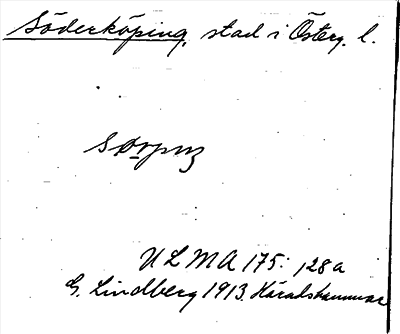 Söderköping, stad i Österg. l.
ULMA 175: 128a
G. Lindberg 1913. Häradshammar